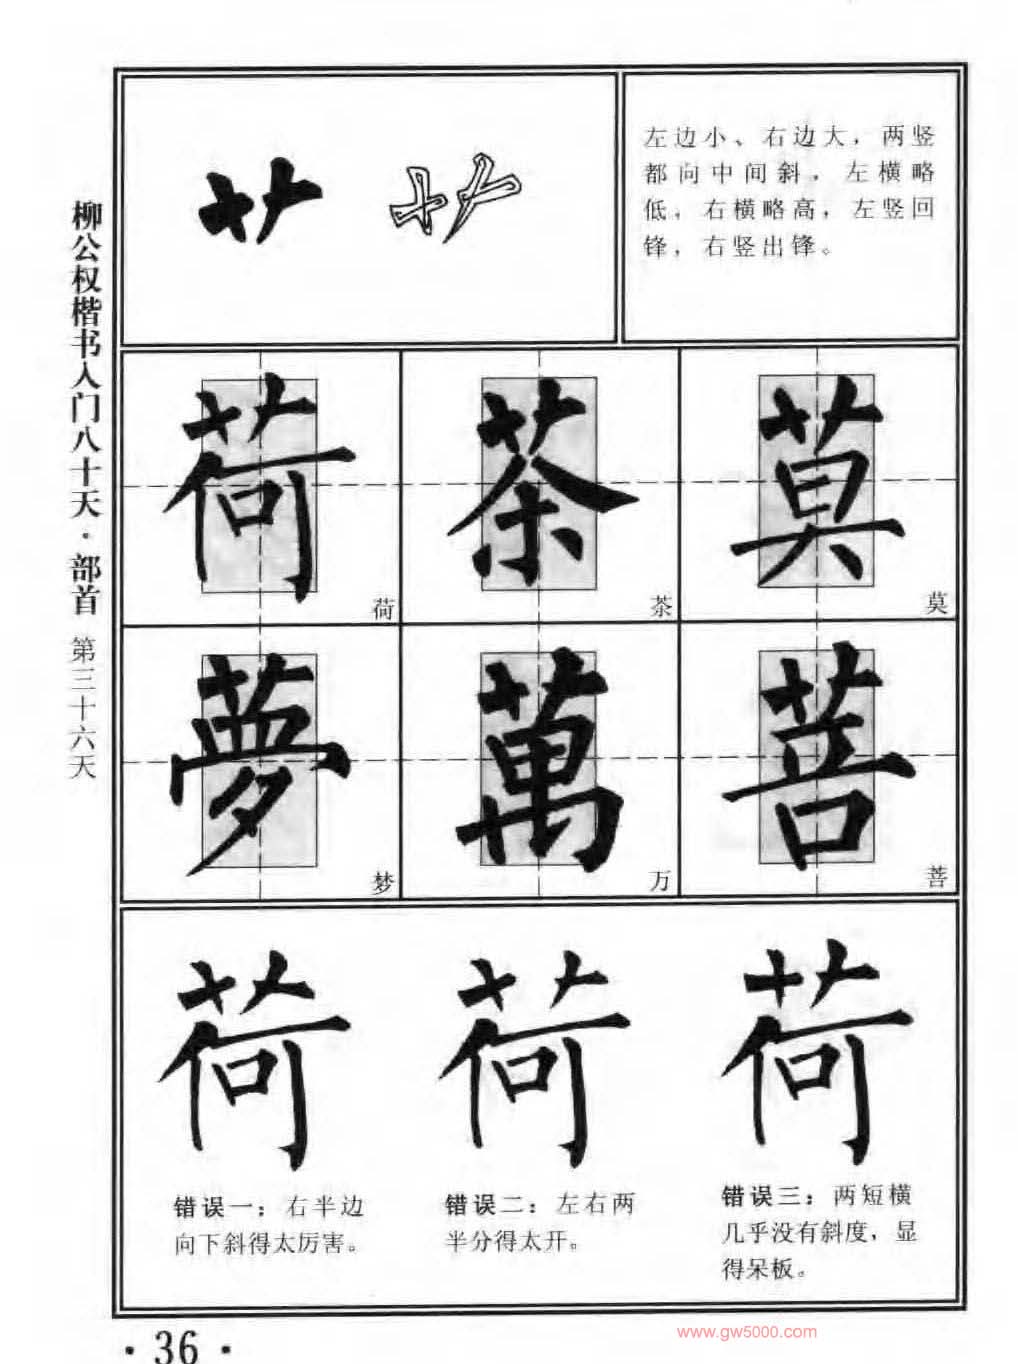 柳公权楷书入门八十天·部首 第三十六天
艹 艹
左边小、右边大，两竖
都向中间斜，左横略
低，右横略高，左竖回
锋，右竖出锋。
荷 茶 莫
荷 茶 莫
夢 萬 菩
梦 万 菩
荷 荷 荷
错误一：右半边
向下斜得太厉害。
错误二：左右两
半分得太开。
错误三：两短横
几乎没有斜度，显
得呆板。
www.gw5000.com
·36·